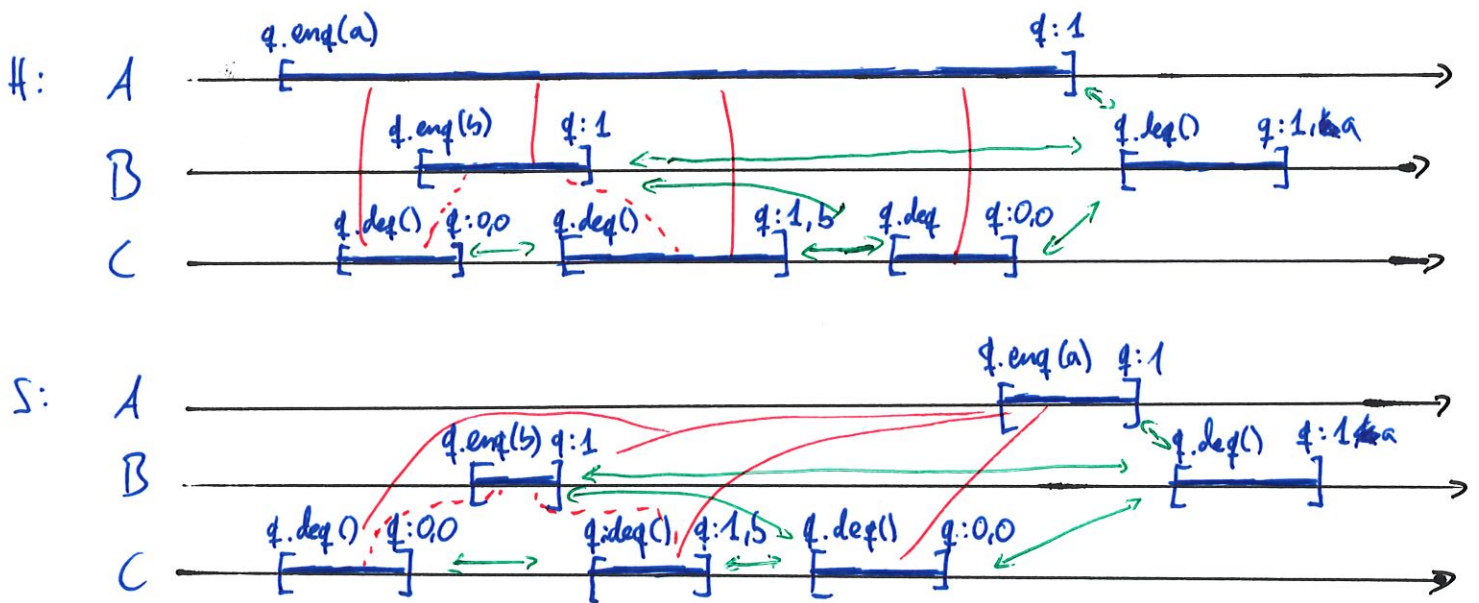 q.enq(a) q:1
H: A
q.enq(b) q:1 q.deq() q:1,a
B
q.deq() q:0,0 q.deq() q:1,b q.deq q:0,0
C
q.enq(a) q:1
S: A
q.enq(b) q:1 q.deq() q:1 a
B
q.deq() q:0,0 q.deq() q:1,b q.deq() q:0,0
C